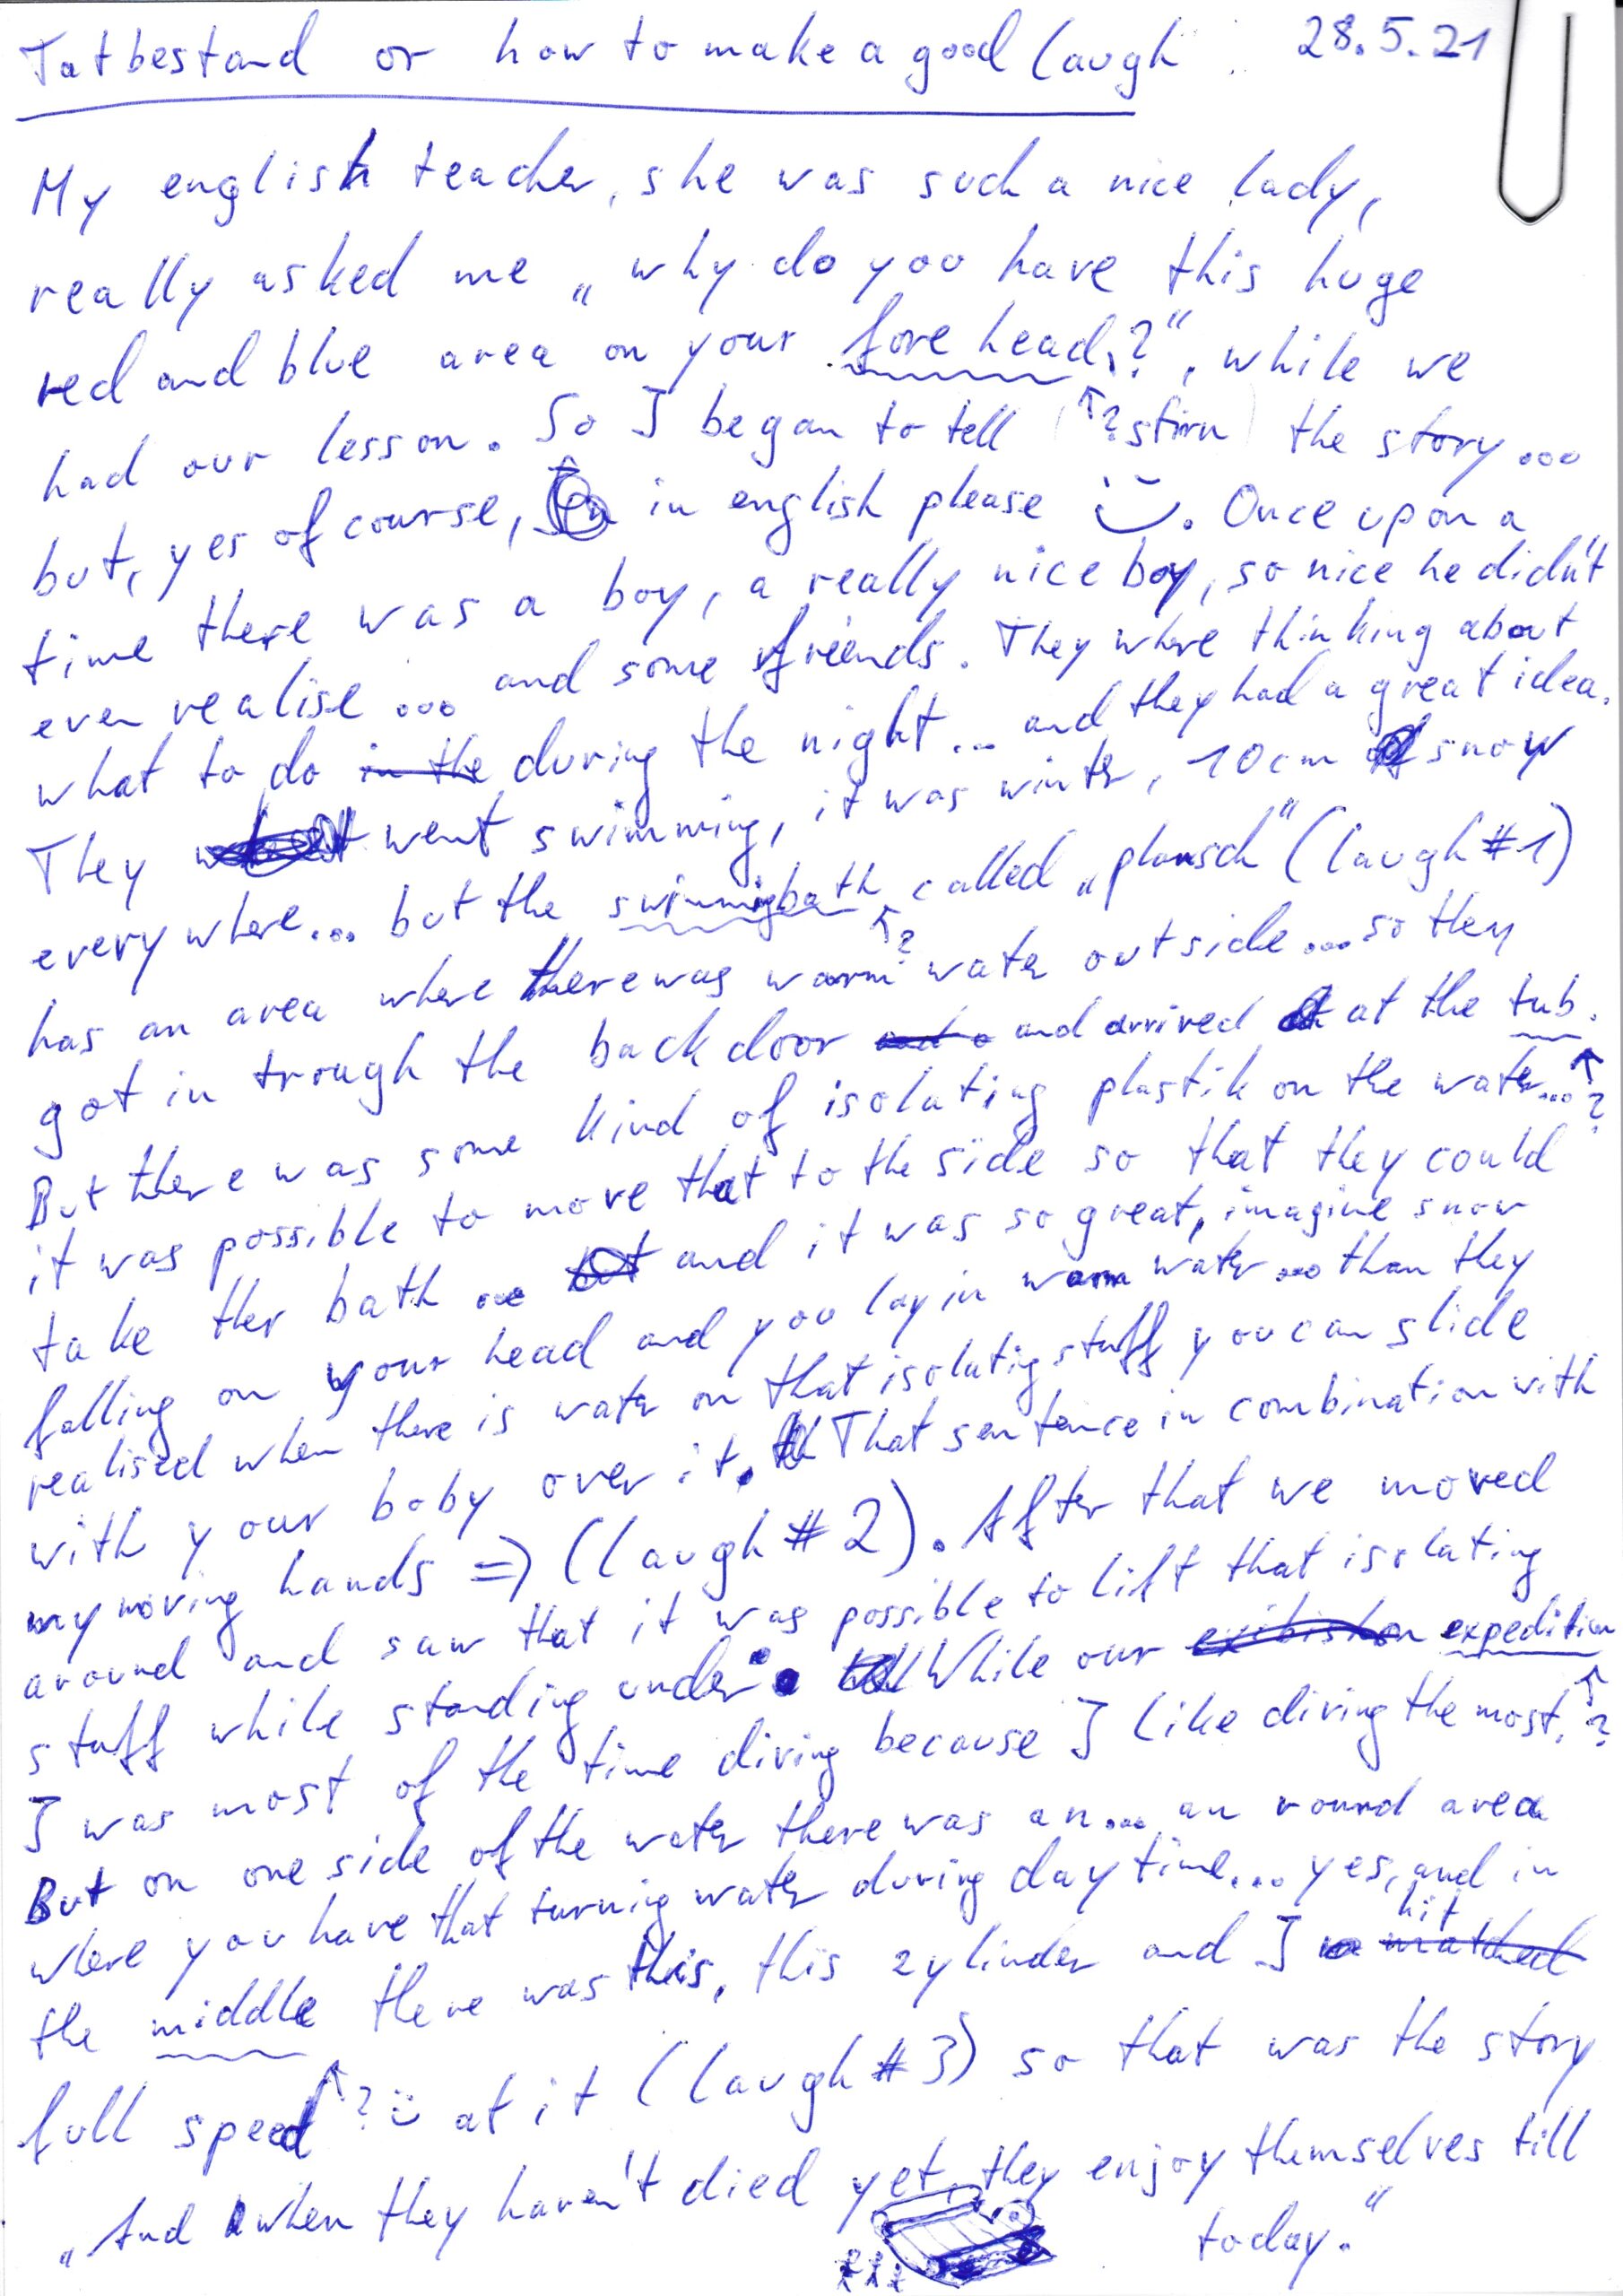 Tatbestand or how to make a good laugh. 28.5.21
My english teacher, she was such a nice lady,
really asked me „why do you have this huge
red and blue area on your fore head?“, while we
had our lesson. So I began to tell (↑? stirn) the story...
but, yes of course, in english please :). Once upon a
time there was a boy, a really nice boy, so nice he didn't
even realise ... and some friends. They where thinking about
what to do in the during the night ... and they had a great idea.
They went swimming, it was winter, 10cm snow
everywhere... but the swimmigbath ↑? called „plansch“ (laugh #1)
has an area where there was warm water outside... so they
got in trough the back door and a and arrived at the tub.
But there was some kind of isolating plastik on the water... ↑?
it was possible to move that to the side so that they could
take ther bath ... but and it was so great, imagine snow
falling on your head and you lay in warm water ... than they
realised when there is water on that isolatig stuff you can slide
with your boby over it. That sentence in combination with
my moving hands => (laugh #2). After that we moved
around and saw that it was possible to lift that isolating
stuff while standing under. While our exibishon expedition ↑?
I was most of the time diving because I like diving the most.
But on one side of the water there was an... an round area
where you have that turnig water during daytime... yes, and in
the middle there was this, this zylinder and I matched hit
full speed ↑? :) at it (laugh #3) so that was the story
„And when they haven't died yet, they enjoy themselves till
today.“